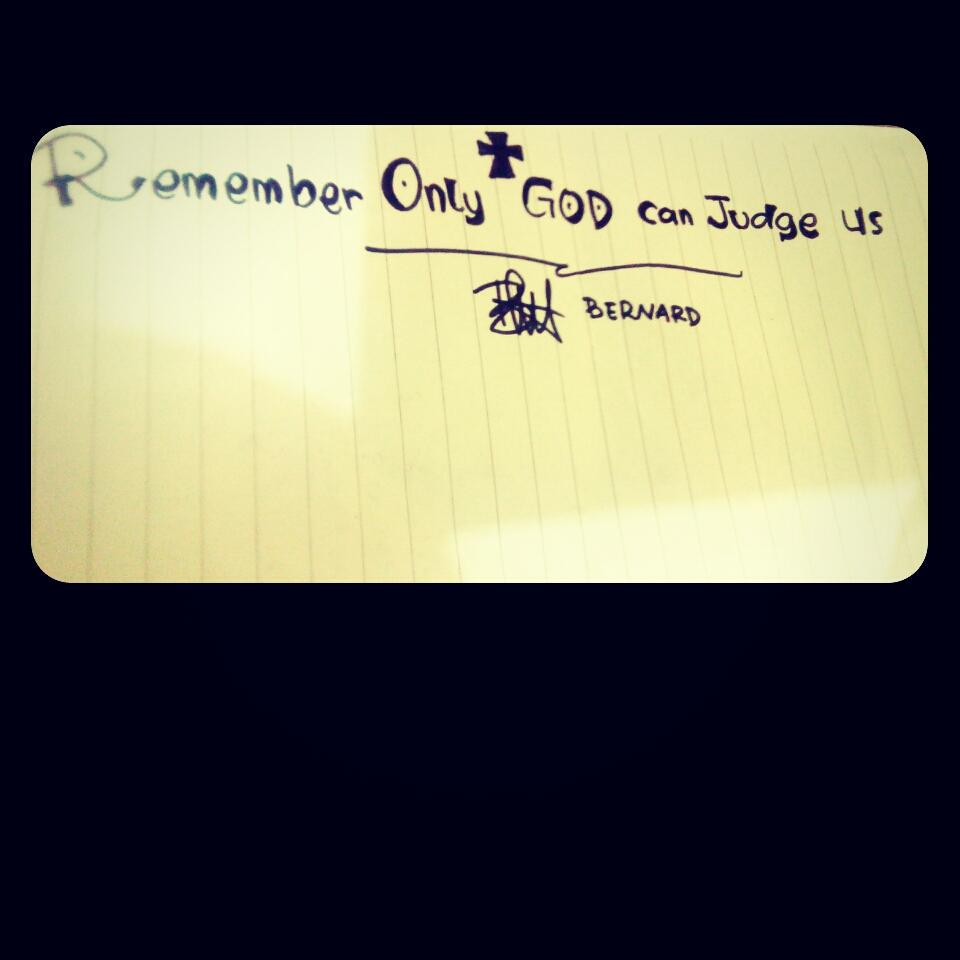 Remember Only GOD can Judge us
BERNARD